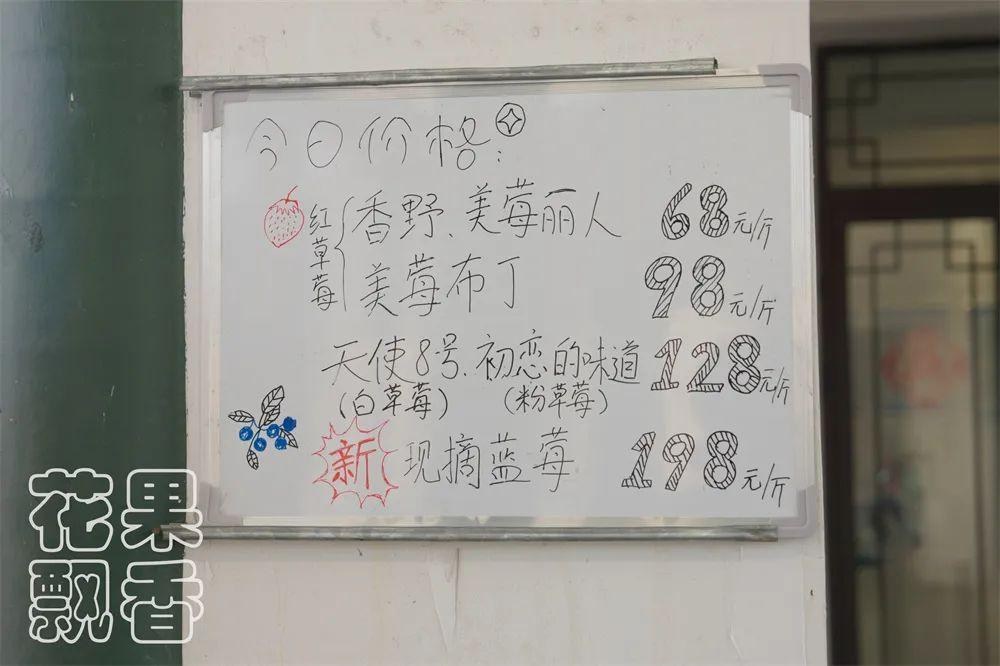 今日价格:
红草莓
香野、美莓丽人 68元/斤
美莓布丁 98元/斤
天使8号、初恋的味道 128元/斤
(白草莓) (粉草莓)
新 现摘蓝莓 198元/斤
花果
飘香